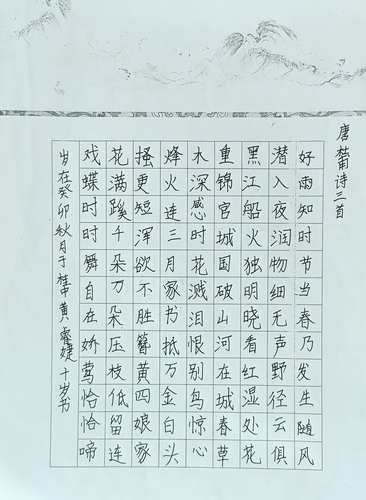 唐杜甫诗三首
好雨知时节当春乃发生随风
潜入夜润物细无声野径云俱
黑江船火独明晓看红湿处花
重锦官城国破山河在城春草
木深感时花溅泪恨别鸟惊心
烽火连三月家书抵万金白头
搔更短浑欲不胜簪黄四娘家
花满蹊千朵万朵压枝低留连
戏蝶时时舞自在娇莺恰恰啼
岁在癸卯秋月于桂中黄睿婕十岁书